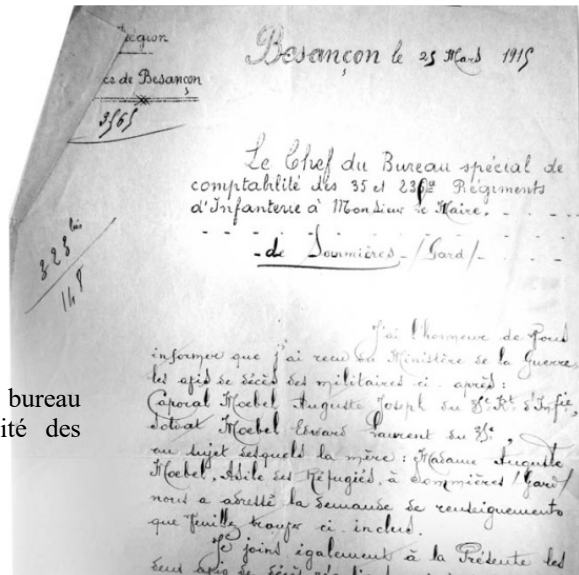 Région
ces de Besançon
3565
Besançon le 25 Mars 1915
Le Chef du Bureau spécial de
comptabilité des 35 et 235e Régiments
d'Infanterie à Monsieur le Maire.
de Sommières /Gard/
323 bis
148
J'ai l'honneur de Vous
informer que j'ai recu du Ministère de la Guerre
les avis de décès des militaires ci-après :
Caporal Hoebel Auguste Joseph du 35e Rt d'Infie,
soldat Hoebel Edward Laurent du 35e,
au sujet desquels la mère : Madame Auguste
Hoebel, Asile des Réfugiés, à Sommières /Gard/
nous a adressé la demande de renseignements
que Veuillez trouver ci inclus.
Je joins également à la Présente les
deux avis de décès
bureau
ité des